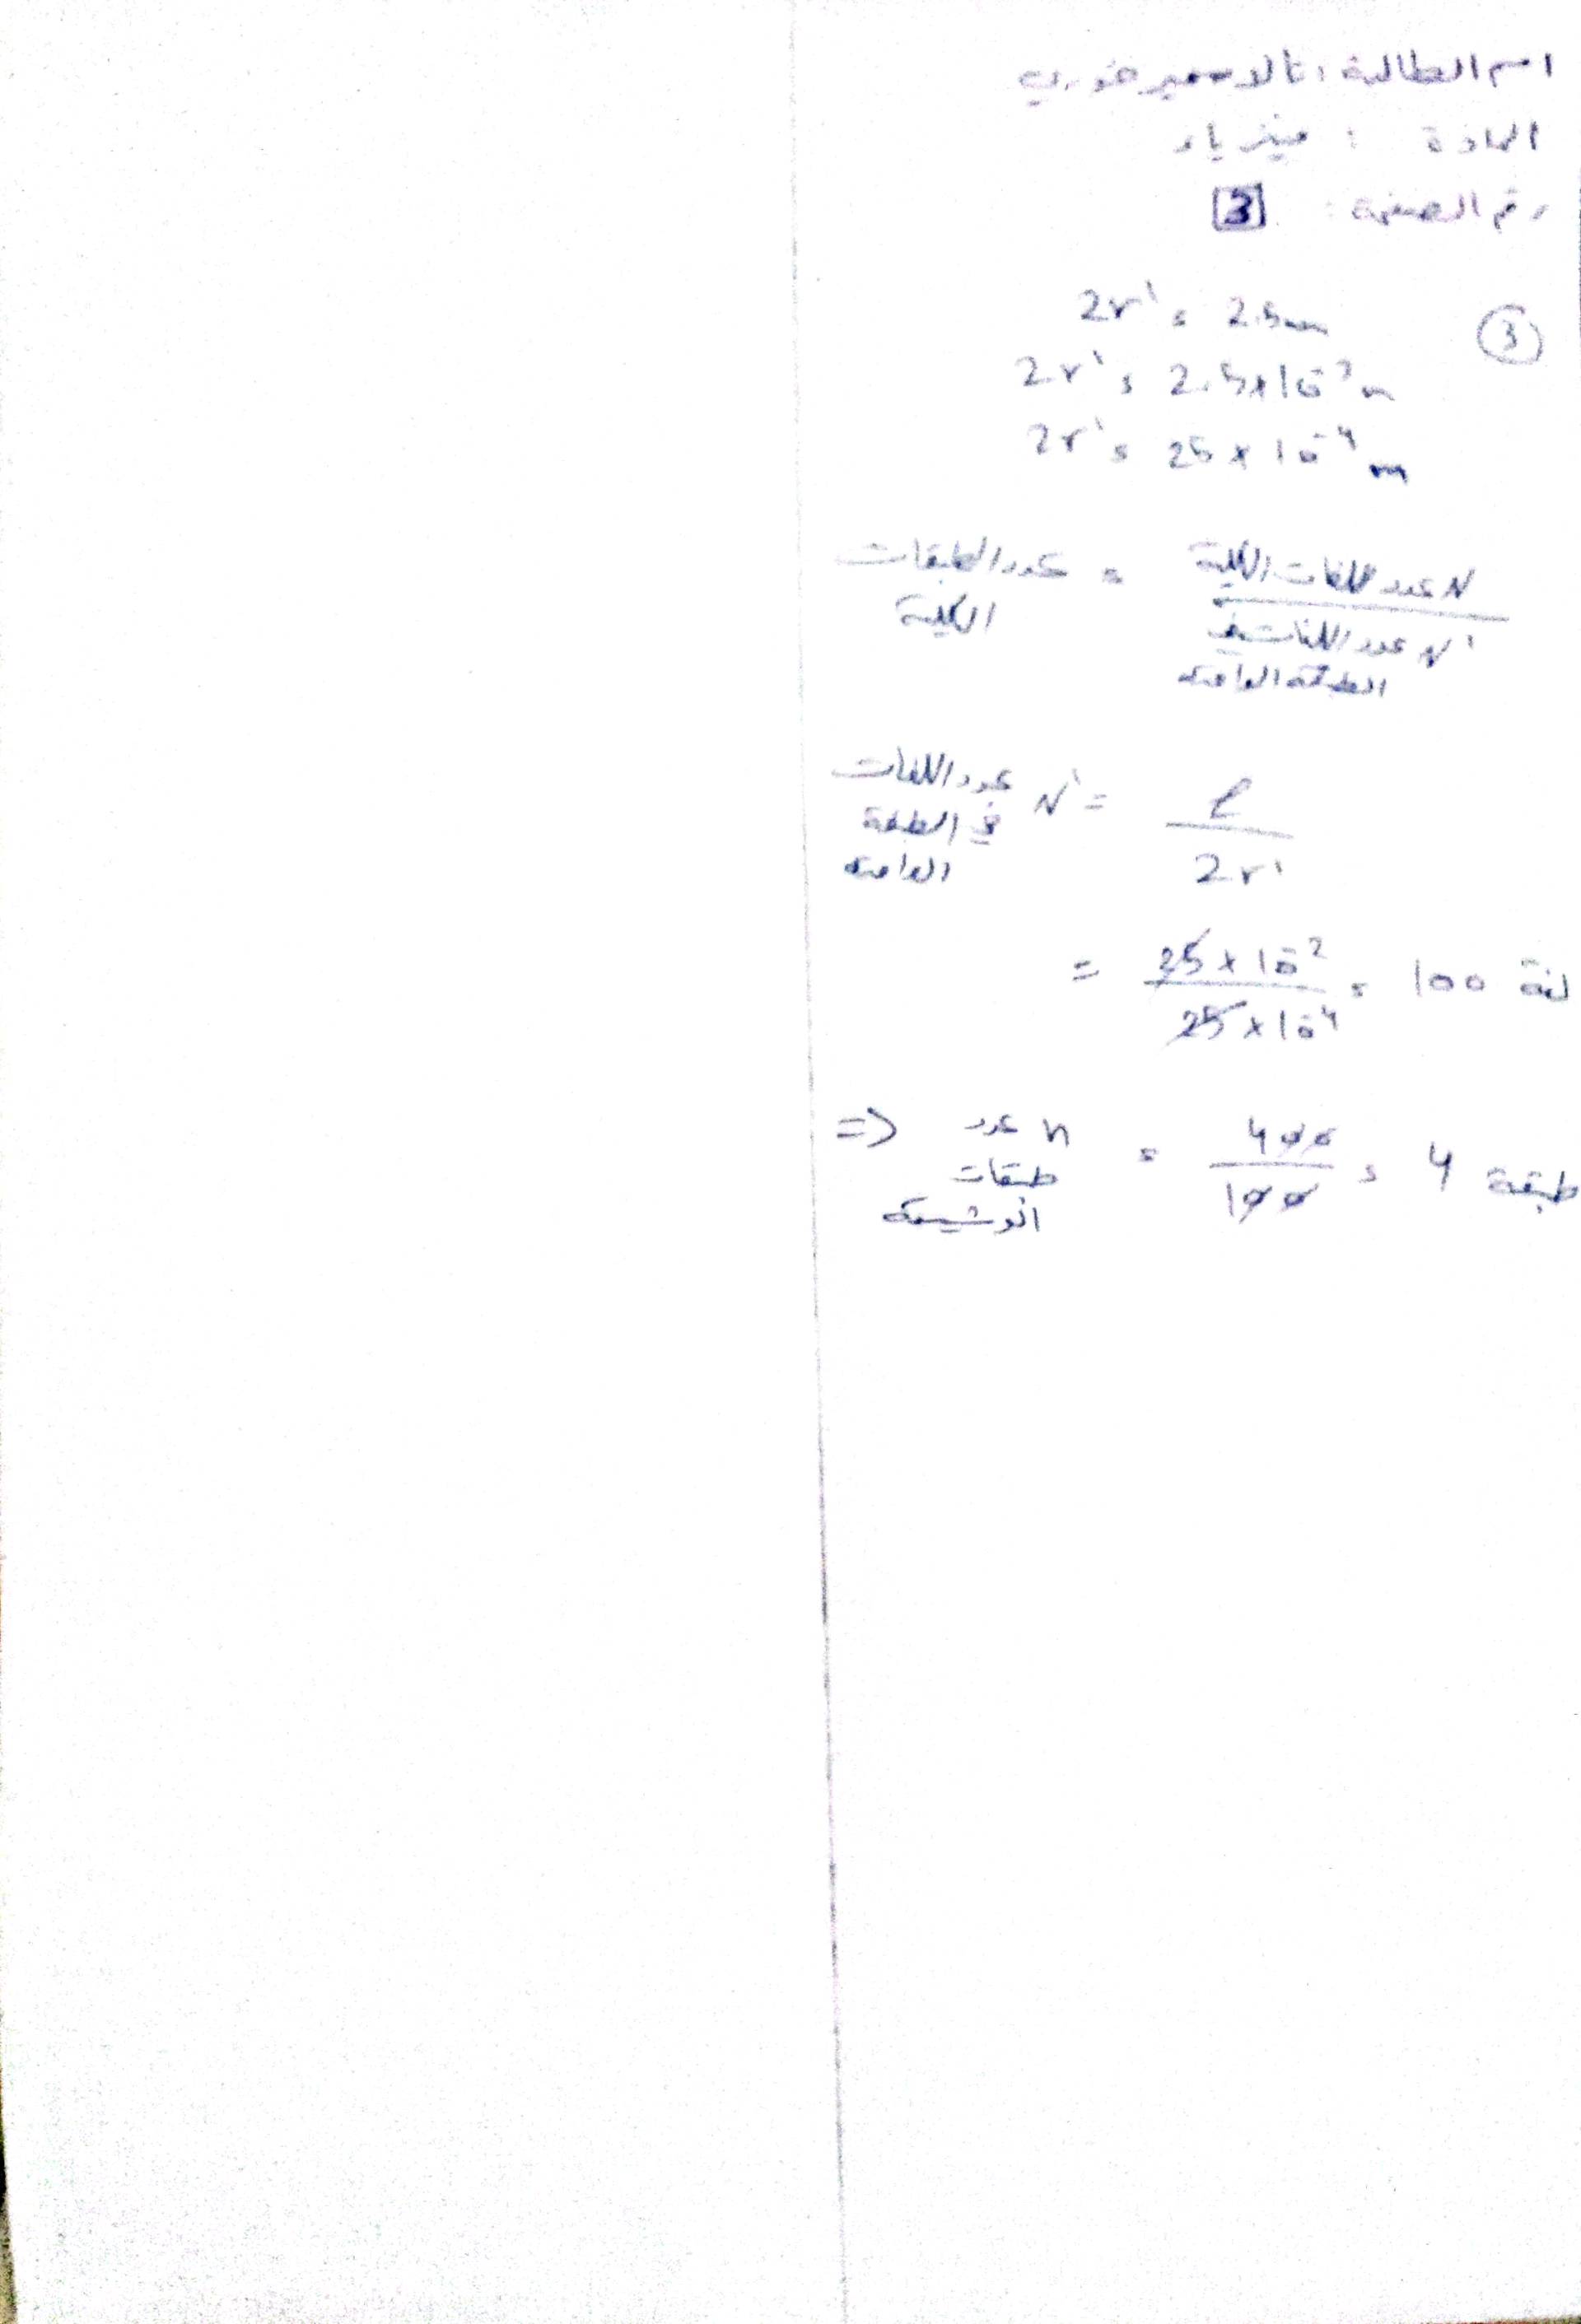 اسم الطالبة : تالا سمير خوري
المادة : فيزياء
رقم الصفحة : 3
3
2r' = 2.5mm
2r' = 2.5×10⁻³ m
2r' = 25 × 10⁻⁴ m
عدد الطبقات الكلية = N عدد اللفات الكلية / N' عدد اللفات في الطبقة الواحدة
عدد اللفات في الطبقة الواحدة N' = ℓ / 2r'
= 25 × 10⁻² / 25 × 10⁻⁴ = 100 لفة
=> n عدد طبقات الوشيعة = 400 / 100 = 4 طبقة